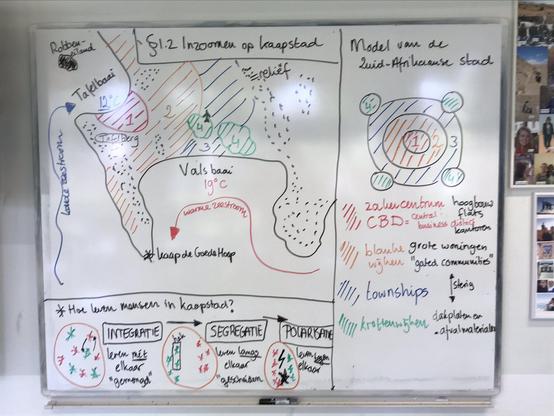 §1.2 Inzoomen op Kaapstad
Robben-
eiland
Tafelbaai
12°C
1
2
3
4
4
Tafelberg
relief
Valsbaai
19°C
koude zeestroom
warme zeestroom
* Kaap de Goede Hoop
Model van de
Zuid-Afrikaanse stad
4
4
1
2
3
4
4
zakencentrum
CBD = central
business district
hoogbouw
flats
kantoren
blanke
wijken
grote woningen
"gated communities"
townships
sterig
krottenwijken
dakplaten en
afvalmaterialen
* Hoe leven mensen in Kaapstad?
INTEGRATIE
leven mét
elkaar
"gemengd"
SEGREGATIE
leven langs
elkaar
"gescheiden"
POLARISATIE
leven tegen
elkaar